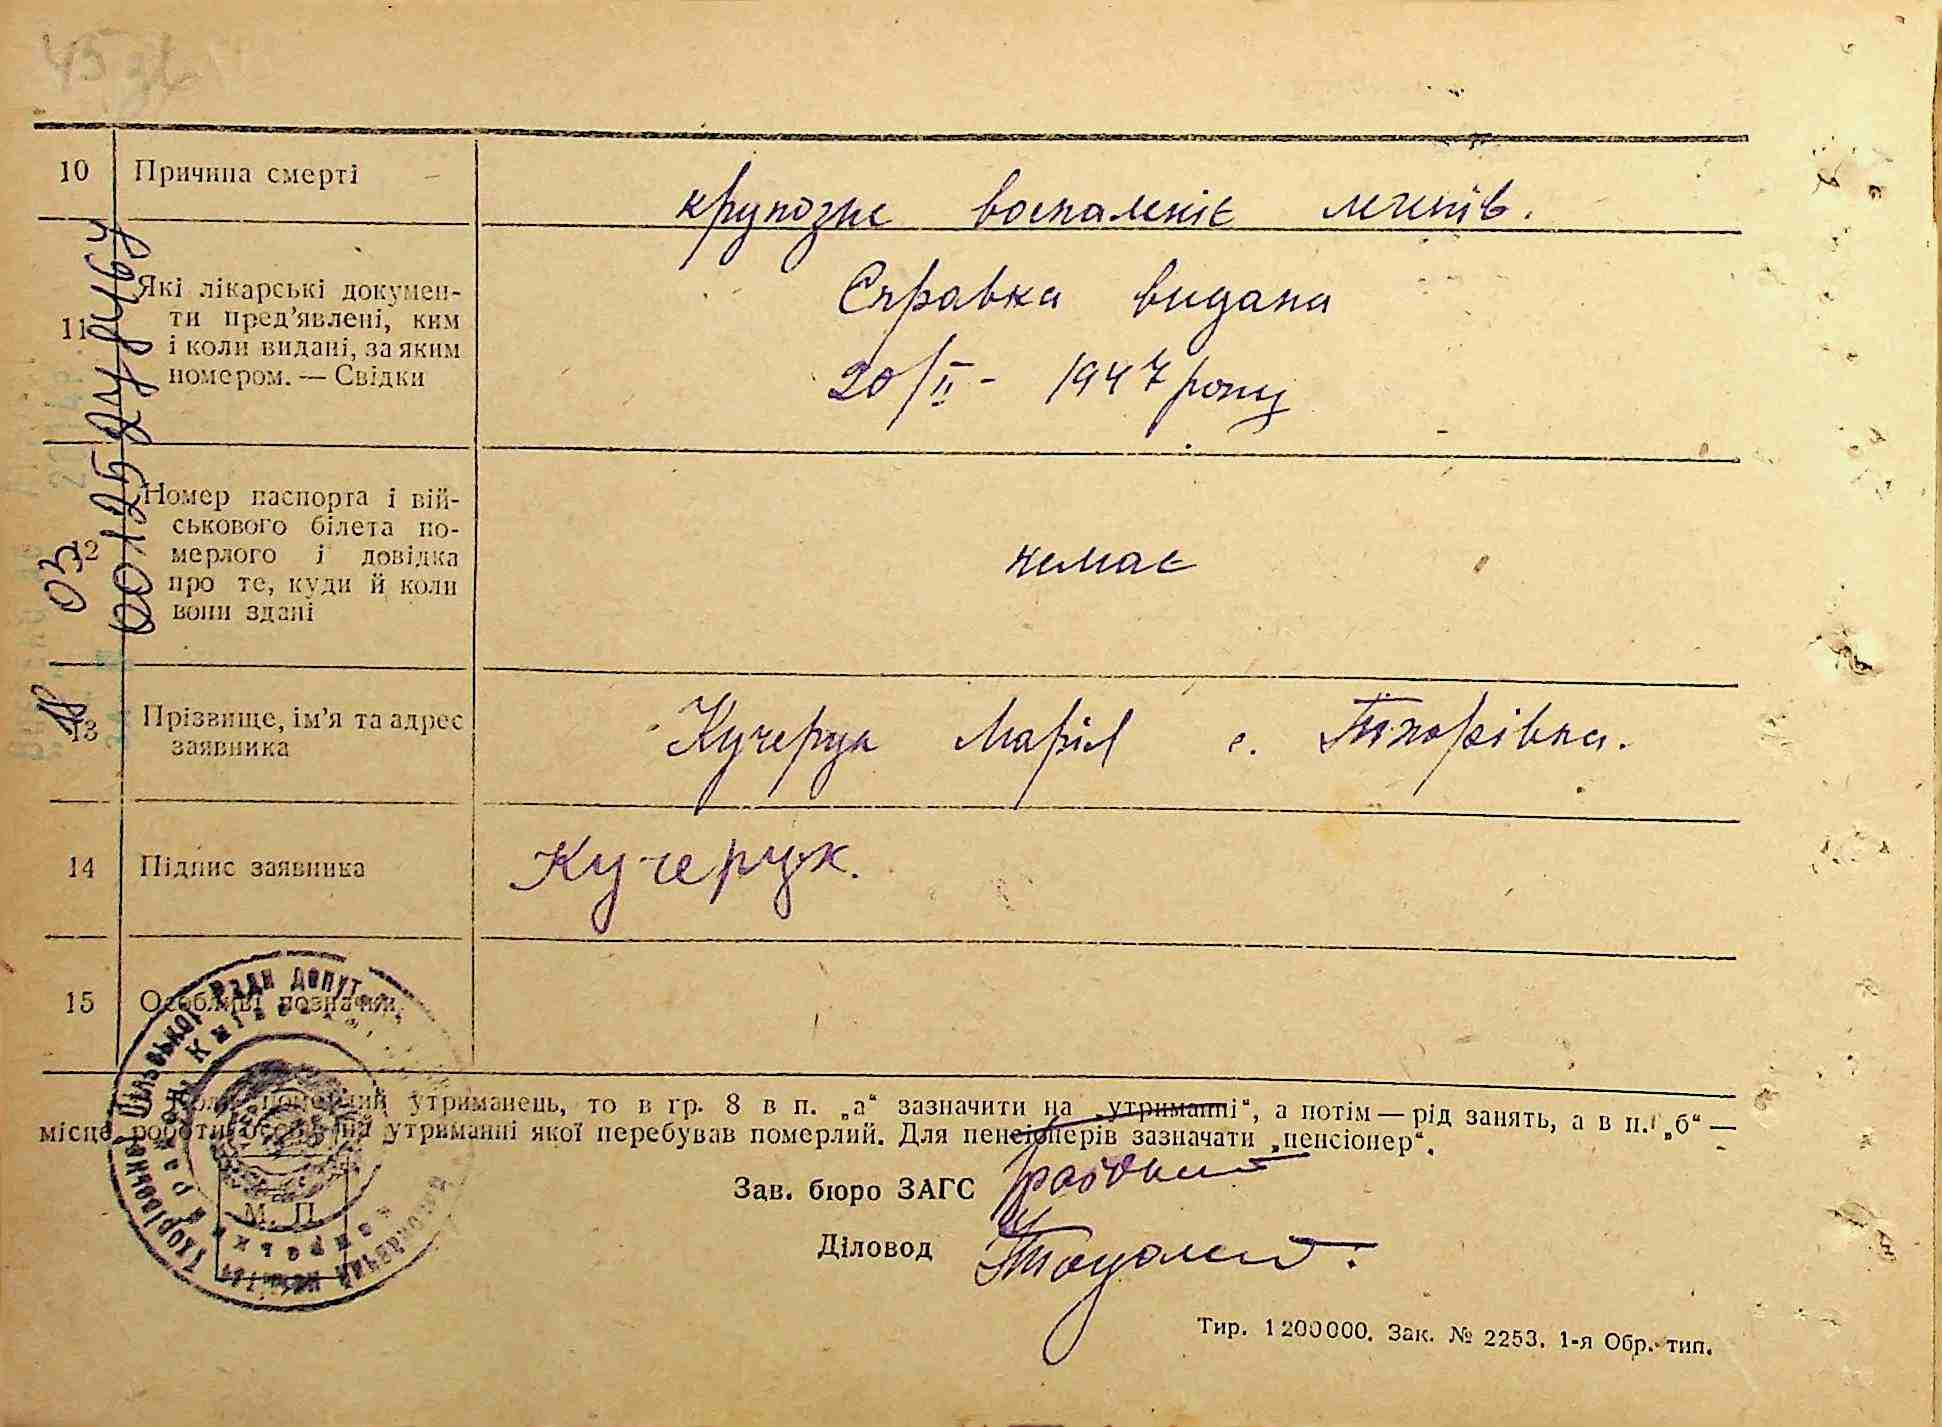 45 зв
10 Причина смерті
крупозне воспаленіє легенів.
11 Які лікарські докумен-
ти пред'явлені, ким
і коли видані, за яким
номером. — Свідки
Справка видана
20/II - 1947 року
12 Номер паспорта і вій-
ськового білета по-
мерлого і довідка
про те, куди й коли
вони здані
немає
13 Прізвище, ім'я та адрес
заявника
Кучерук Марія с. Тхорівка.
14 Підпис заявника
Кучерук.
15 Особливі позначки
утриманець, то в гр. 8 в п. „а“ зазначити на „утриманні“, а потім — рід занять, а в п. „б“ —
місце роботи особи, на утриманні якої перебував померлий. Для пенсіонерів зазначати „пенсіонер“.
Зав. бюро ЗАГС
Діловод
М. П.
Тхорівської Сільської Ради депут
район, Київ
Тир. 1200000. Зак. № 2253. 1-я Обр. тип.
18 03
00125247467